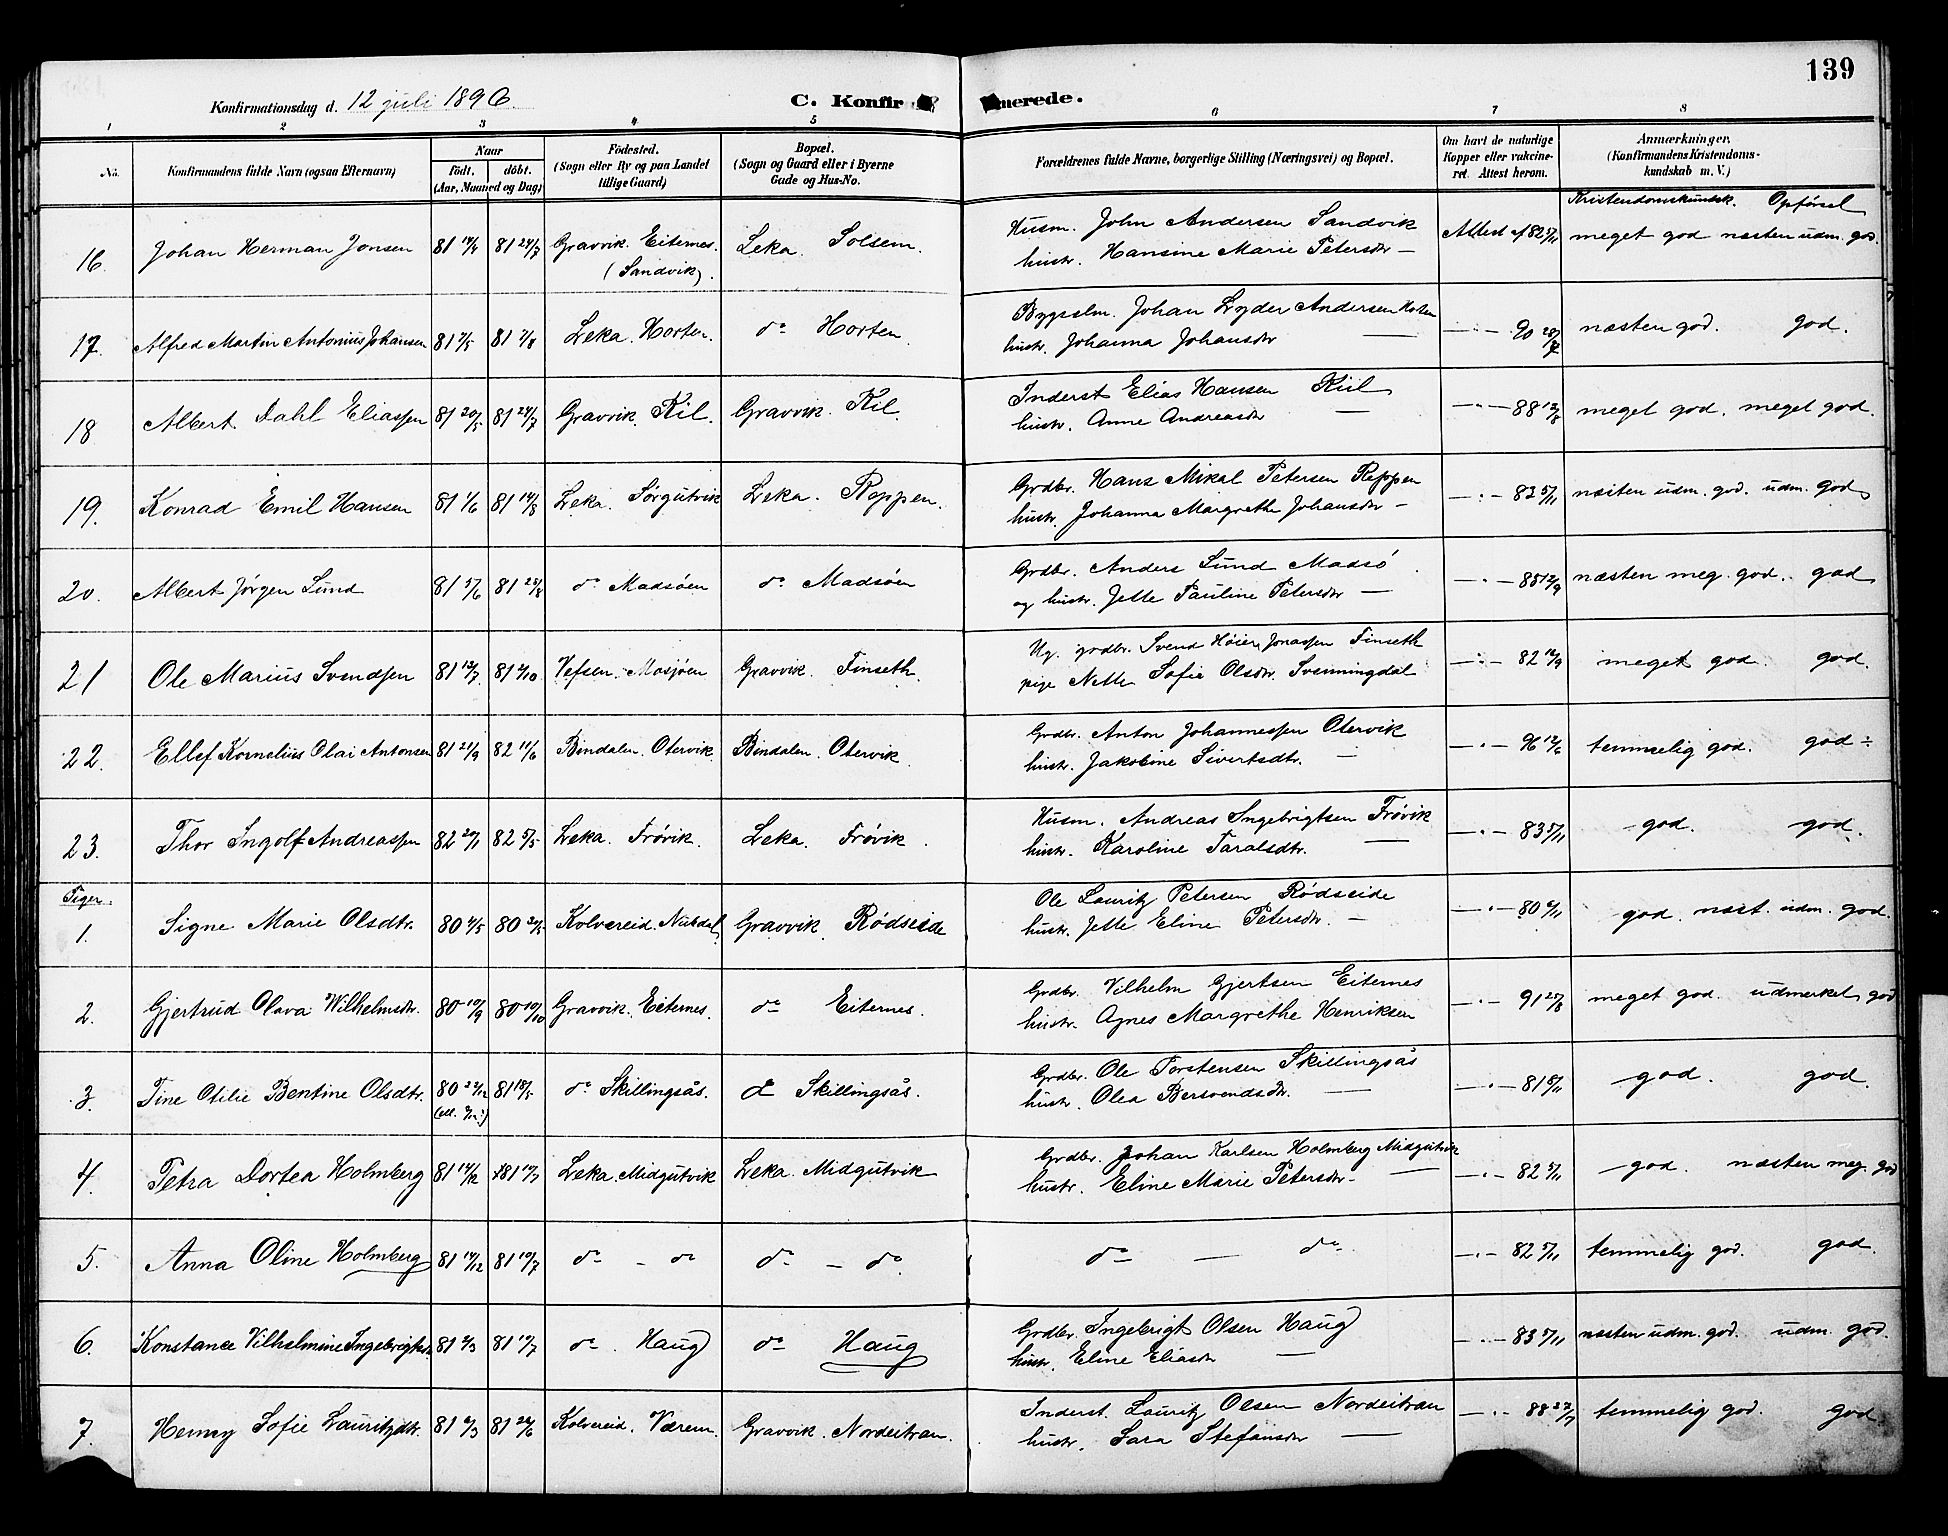 139
Konfirmationsdag d. 12 juli 1896. C. Konfirmerede.
1 2 3 4 5 6 7 8
No. Konfirmandens fulde Navn (ogsaa Efternavn) Naar födt. döbt. (Aar, Maaned og Dag) Födested. (Sogn eller By og paa Landet tillige Gaard) Bopæl. (Sogn og Gaard eller i Byerne Gade og Hus-No. Forældrenes fulde Navne, borgerlige Stilling (Næringsvei) og Bopæl. Om havt de naturlige Kopper eller vakcineret. Attest herom. Anmærkninger. (Konfirmandens Kristendomskundskab m. V.)
Kristendomskundsk. Opförsel
16. Johan Herman Jonsen 81 81 24/7 Gravvik. Eiternes. (Sandvik). Leka. Solsem. Husm. John Andersen Sandvik
hustr. Hansine Marie Petersdtr — Attest af 82 5/11 meget god næsten udm. god.
17. Alfred Martin Antonius Johansen 81 81 7/8 Leka. Horten. do Horten. Bygselm. Johan Lyder Andersen
hustr. Johanna Johansdtr — —"— 90 næsten god. god.
18 Albert Dahl Eliassen 81 20/5 81 24/7 Gravvik. Kil. Gravvik. Kil. Inderst Elias Hansen Kiil
hustr. Anne Andreasdtr — —"— 88 12/8 meget god. meget god.
19. Konrad Emil Hansen 81 1/6 81 14/8 Leka. Sørgutvik Leka. Reppen. Grdbr. Hans Mikal Petersen Reppen
hustr. Johanna Margrethe Johansdtr — —"— 82 5/11 næsten udm. god. udm. god
20. Albert Jörgen Lund 81 5/6 81 28/8 do Madsöen do Madsöen Grdbr. Anders Lund Madsö
og hustr. Jette Pauline Petersdtr — —"— 85 12/9 næsten meg. god. god
21 Ole Marius Svendsen 81 12/7 81 2/10 Vefsen. Mosjöen Gravvik. Finseth. Ug. grdbr. Svend Höier Jonassen Finseth
pige Nette Sofie Olsdtr. Svenningdal —"— 82 meget god. god.
22. Ellef Kornelius Olai Antonsen 81 21/9 82 11/6 Bindalen. Otervik Bindalen. Otervik Grdbr. Anton Johannessen Otervik
hustr. Jakobine Sivertsdtr. — —"— 96 12/6 temmelig god. god ÷
23. Thor Ingolf Andreassen 82 20/1 82 5/5 Leka. Frövik. Leka. Frövik. Husm. Andreas Ingebrigtsen Frövik
hustr. Karoline Taralsdtr. — —"— 83 5/11 god. god.
Piger.
1. Signe Marie Olsdtr. 80 80 Kolvereid. Gravvik. Rödseide Ole Lauritz Petersen Rödseide
hustr. Jette Eline Petersdtr. — —"— 80 6/11 god. næst. udm. god.
2. Gjertrud Olava Wilhelmsdtr. 80 10/9 80 10/10 Gravvik. Eiternes. do Eiternes. Grdbr. Vilhelm Gjertsen Eiternes
hustr. Agnes Margrethe Henriksen —"— 91 25/8 meget god. udmerket god
3. Tine Otilie Bentine Olsdtr. 80 81 18/5 do Skillingsås. do Skillingsås. Grdbr. Ole Torstensen Skillingsås
hustr. Olea Bersvendsdtr. — —"— 81 god. god.
4. Petra Dortea Holmberg 81 14/12 81 Leka. Midgutvik Leka. Midgutvik Grdbr. Johan Karlsen Holmberg Midgutvik
hustr. Eline Marie Petersdtr — —"— 82 5/11 god. næsten meg. god
5. Anna Oline Holmberg 81 14/12 81 do - do do - do. do — do. —"— 82 5/11 temmelig god. god.
6. Konstance Vilhelmine Ingebrigtsdtr. 81 81 do. Haug do Haug Grdbr. Ingebrigt Olsen Haug
hustr. Eline Eliasdtr — —"— 83 5/11 næsten udm. god. udm. god.
7. Henny Sofie Lauritzdtr. 81 81 Kolvereid. Værem. Gravvik. Nordeitran. Inderst. Lauritz Olsen Nordeitran
hustr. Sara Stefansdtr — —"— 88 22/7 temmelig god. god.